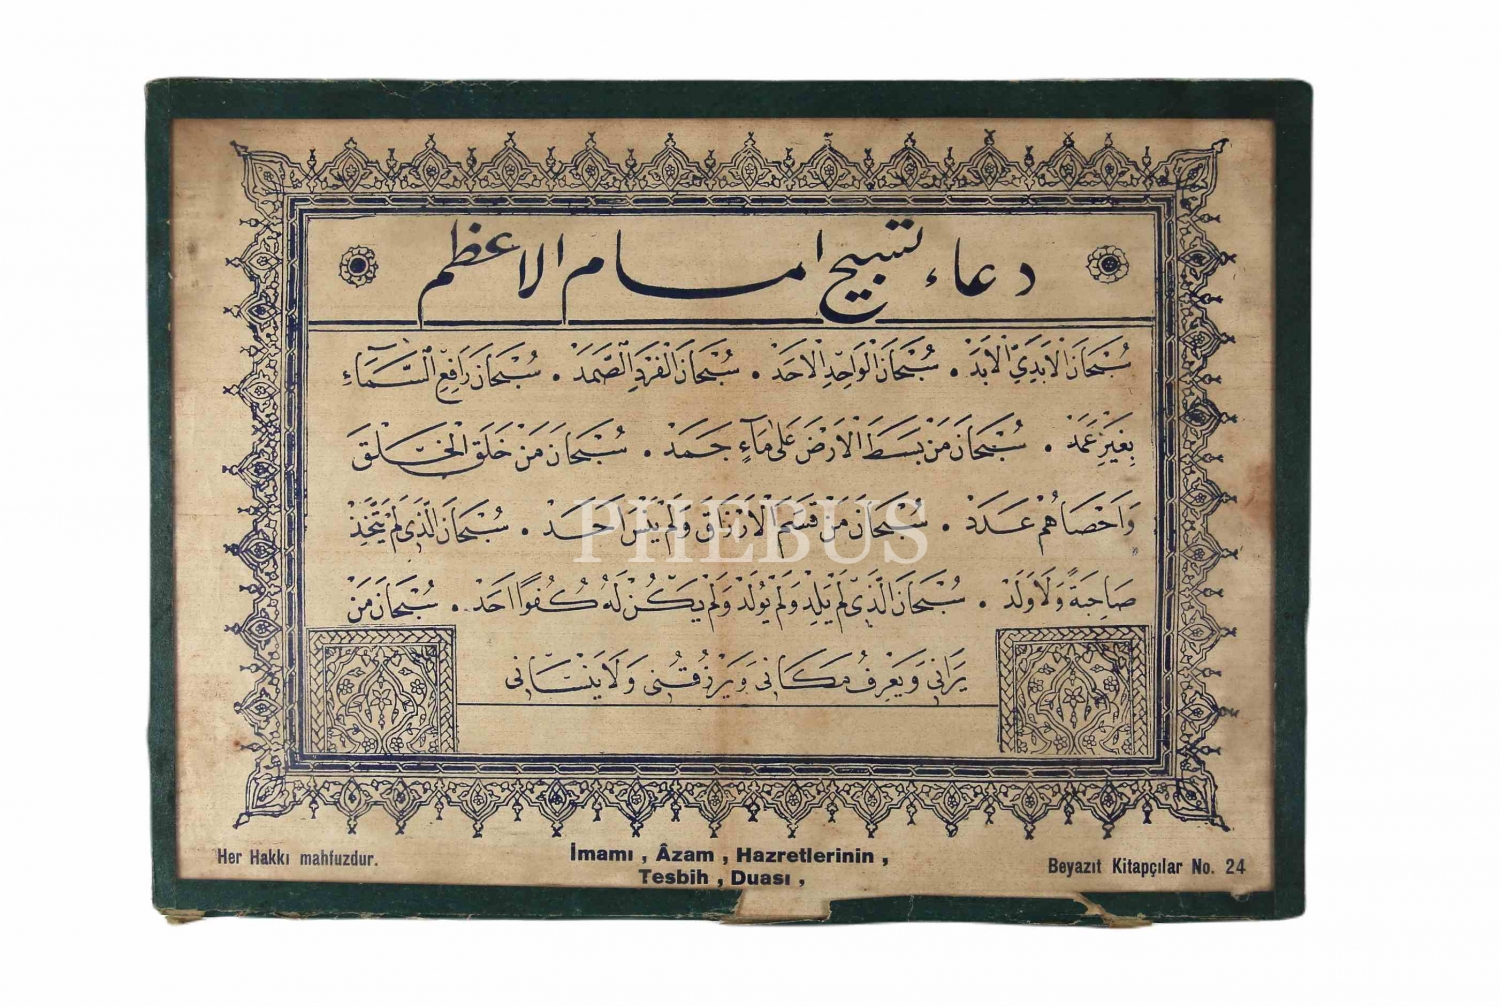 دعاء تسبيح امام الاعظم
سُبْحَانَ الْاَبَدِيِّ الْاَبَدْ . سُبْحَانَ الْوَاحِدِ الْاَحَدْ . سُبْحَانَ الْفَرْدِ الصَّمَدْ . سُبْحَانَ رَافِعِ السَّمَاءِ
بِغَيْرِ عَمَدْ . سُبْحَانَ مَنْ بَسَطَ الْاَرْضَ عَلٰى مَاءٍ جَمَدْ . سُبْحَانَ مَنْ خَلَقَ الْخَلْقَ
وَاَحْصَاهُمْ عَدَدْ . سُبْحَانَ مَنْ قَسَمَ الْاَرْزَاقَ وَلَمْ يَنْسَ اَحَدْ . سُبْحَانَ الَّذِى لَمْ يَتَّخِذْ
صَاحِبَةً وَلَا وَلَدْ . سُبْحَانَ الَّذِى لَمْ يَلِدْ وَلَمْ يُولَدْ وَلَمْ يَكُنْ لَهُ كُفُوًا اَحَدْ . سُبْحَانَ مَنْ
يَرَانِى وَيَعْرِفُ مَكَانِى وَيَرْزُقُنِى وَلَا يَنْسَانِى
PHEBUS
Her Hakkı mahfuzdur.
İmamı , Âzam , Hazretlerinin ,
Tesbih , Duası ,
Beyazıt Kitapçılar No. 24